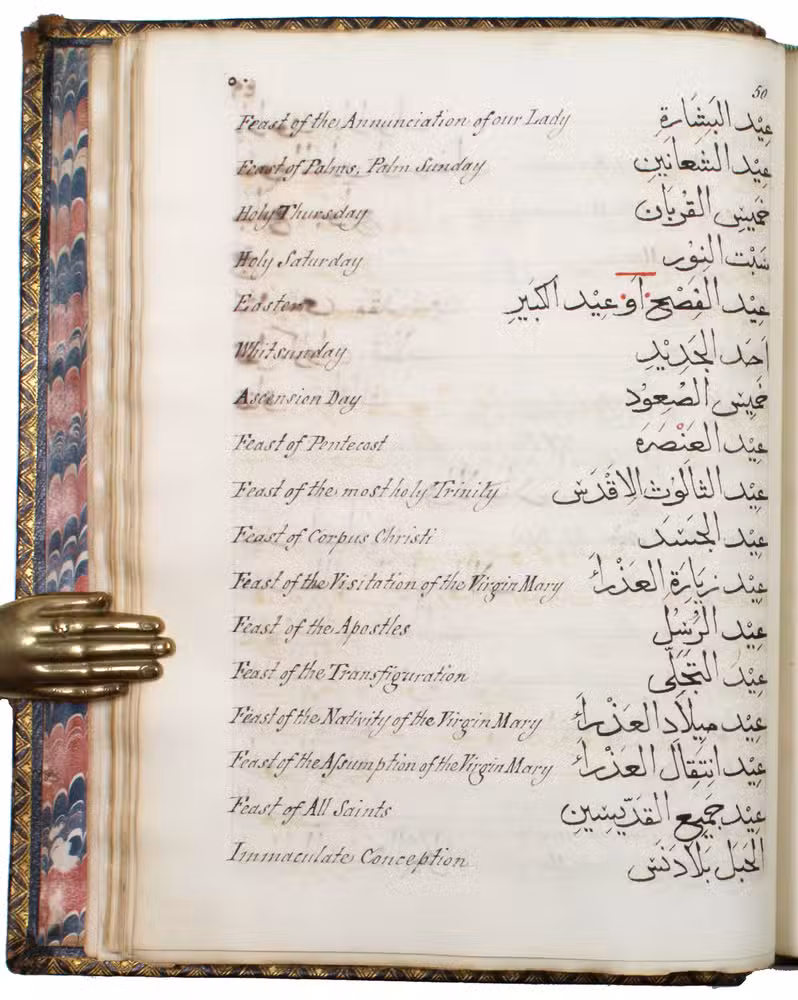 ٥٠ 50
Feast of the Annunciation of our Lady عِيْد البَشَارَة
Feast of Palms, Palm Sunday عِيْد الشَعانَيِن
Holy Thursday خَمِيس القُربَان
Holy Saturday سَبْت النِوْر
Easter عِيْد الفِصْح اَوْ عِيْد اكبَيرِ
Whitsunday اَحَد الجَدِيْدِ
Ascension Day خَمِيس الصُعوْد
Feast of Pentecost عِيْد العَنْصَرَه
Feast of the most holy Trinity عِيْد الثالَوُث الاقْدَس
Feast of Corpus Christi عِيْد الجَسَد
Feast of the Visitation of the Virgin Mary عِيْد زِيَارَةِ العَذْرَاء
Feast of the Apostles عِيْد الرُسُل
Feast of the Transfiguration عِيْد التَجَلّي
Feast of the Nativity of the Virgin Mary عِيْد مِيلاَد العَذْرَاء
Feast of the Aſsumption of the Virgin Mary عِيْد انِتِقَال العَذْرَاء
Feast of All Saints عِيْد جَمِيع القَدّيِسِين
Immaculate Conception الحَبَل بَلاَ دَنَس